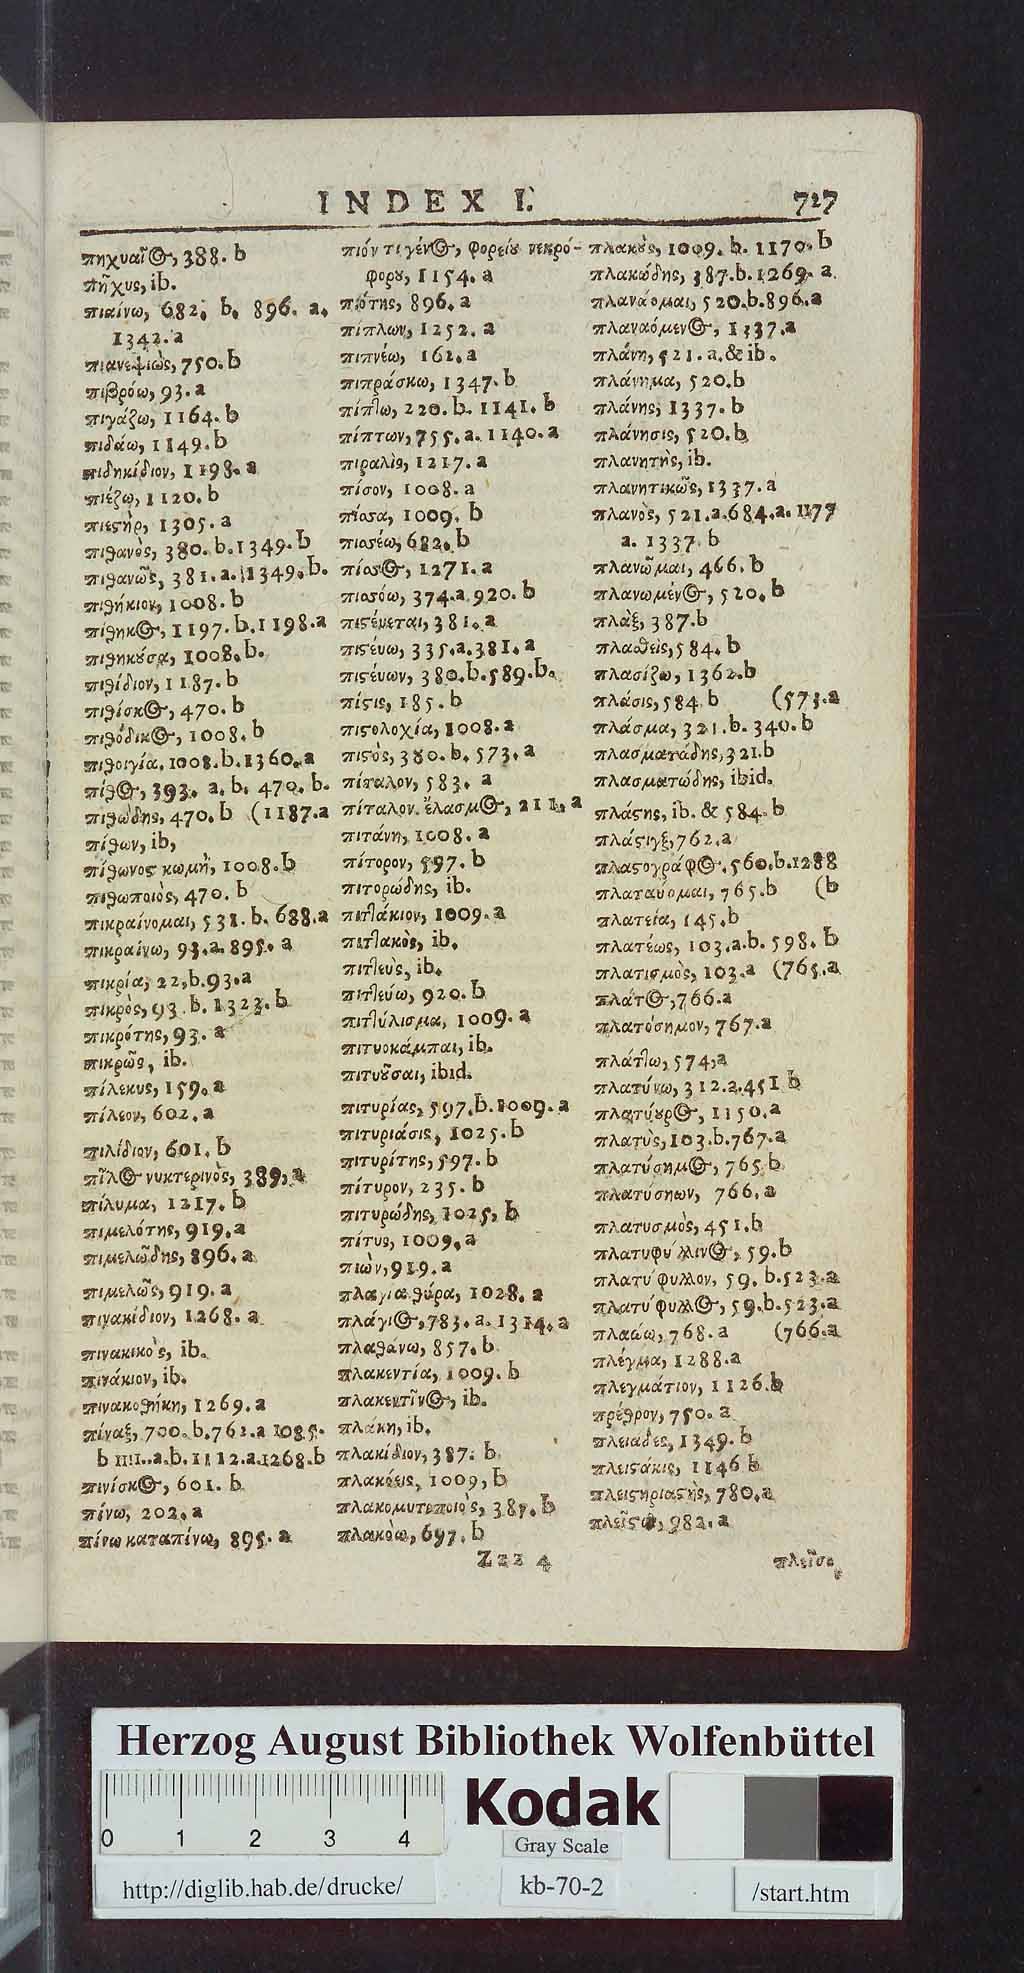 INDEX I. 727
πηχυαῖος, 388. b
πῆχυς, ib.
πιαίνω, 682. b. 896. a.
1342. a
πιανεψιὼς, 750. b
πιβρόω, 93. a
πιγάζω, 1164. b
πιδάω, 1149. b
πιδηκίδιον, 1198. a
πιέζω, 1120. b
πιεστὴρ, 1305. a
πιθανὸς, 380. b. 1349. b
πιθανῶς, 381. a. 1349. b.
πιθήκιον, 1008. b
πίθηκος, 1197. b. 1198. a
πιθηκοῦσα, 1008. b.
πιθίδιον, 1187. b
πιθίσκος, 470. b
πιθόδικος, 1008. b
πιθοιγία, 1008. b. 1360. a
πίθος, 393. a. b. 470. b.
πιθώδης, 470. b (1187. a
πίθων, ib,
πίθωνος κωμὴ, 1008. b
πιθωποιὸς, 470. b
πικραίνομαι, 531. b. 688. a
πικραίνω, 93. a. 895. a
πικρία, 22, b. 93. a
πικρὸς, 93. b. 1323. b
πικρότης, 93. a
πικρῶς, ib.
πίλεκυς, 159. a
πίλεον, 602. a
πιλίδιον, 601. b
πῖλος νυκτερινὸς, 389, a
πίλυμα, 1217. b
πιμελότης, 919. a
πιμελώδης, 896. a
πιμελῶς, 919. a
πινακίδιον, 1268. a
πινακικὸς, ib.
πινάκιον, ib.
πινακοθήκη, 1269. a
πίναξ, 700. b. 762. a 1085.
b 1111. a. b. 1112. a. 1268. b
πινίσκος, 601. b
πίνω, 202. a
πίνω καταπίνω, 895. a
πιόν τι γένος, φορείου νεκρό-
φορου, 1154. a
πιότης, 896. a
πίπλων, 1252. a
πιπνέω, 162. a
πιπράσκω, 1347. b
πίπτω, 220. b. 1141. b
πίπτων, 755. a. 1140. a
πιραλὶς, 1217. a
πίσον, 1008. a
πίσσα, 1009. b
πισσέω, 682. b
πίσσος, 1271. a
πισσόω, 374. a 920. b
πιστέυεται, 381. a
πιστέυω, 335. a. 381. a
πιστέυων, 380. b. 589. b.
πίστις, 185. b
πιστολοχία, 1008. a
πιστὸς, 380. b. 573. a
πίταλον, 583. a
πίταλον ἔλασμος, 211. a
πιτάνη, 1008. a
πίτορον, 597. b
πιτορώδης, ib.
πιττάκιον, 1009. a
πιττακὸς, ib.
πιττεὺς, ib.
πιττεύω, 920. b
πιττύλισμα, 1009. a
πιτυοκάμπαι, ib.
πιτυοῦσαι, ibid.
πιτυρίας, 597. b. 1009. a
πιτυριάσις, 1025. b
πιτυρίτης, 597. b
πίτυρον, 235. b
πιτυρώδης, 1025, b
πίτυς, 1009. a
πιὼν, 919. a
πλαγία θύρα, 1028. a
πλάγιος, 783. a. 1314. a
πλαθάνω, 857. b
πλακεντία, 1009. b
πλακεντῖνος, ib.
πλάκη, ib.
πλακίδιον, 387. b
πλακόεις, 1009, b
πλακομυτοποιὸς, 387. b
πλακόω, 697. b
πλακοὺς, 1009. b. 1170. b
πλακώδης, 387. b. 1269. a
πλανάομαι, 520. b. 896. a
πλαναόμενος, 1337. a
πλάνη, 521. a. & ib.
πλάνημα, 520. b
πλάνης, 1337. b
πλάνησις, 520. b
πλανητὴς, ib.
πλανητικῶς, 1337. a
πλανὸς, 521. a. 684. a. 1177
a. 1337. b
πλανῶμαι, 466. b
πλανωμένος, 520. b
πλὰξ, 387. b
πλασθεὶς, 584. b
πλασίζω, 1362. b
πλάσις, 584 b (573. a
πλάσμα, 321. b. 340. b
πλασματάδης, 321. b
πλασματώδης, ibid.
πλάστης, ib. & 584. b
πλάστιγξ, 762. a
πλαστογράφος, 560. b. 1288
πλαταύομαι, 765. b (b
πλατεία, 145. b
πλατέως, 103. a. b. 598. b
πλατισμὸς, 103. a (765. a
πλάτος, 766. a
πλατόσημον, 767. a
πλάττω, 574, a
πλατύνω, 312. a. 451 b
πλατύουρος, 1150. a
πλατὺς, 103. b. 767. a
πλατύσημος, 765 b
πλατύσηων, 766. a
πλατυσμὸς, 451. b
πλατυφύλλινος, 59. b
πλατύφυλλον, 59. b. 523. a
πλατύφυλλος, 59. b. 523. a
πλαώω, 768. a (766. a
πλέγμα, 1288. a
πλεγμάτιον, 1126. b
πρέθρον, 750. a
πλειαδες, 1349. b
πλειστάκις, 1146 b
πλειστηριαστὴς, 780. a
982. a
Zzz 4 πλεῖσο
Herzog August Bibliothek Wolfenbüttel
Kodak
0 1 2 3 4
Gray Scale
http://diglib.hab.de/drucke/ kb-70-2 /start.htm